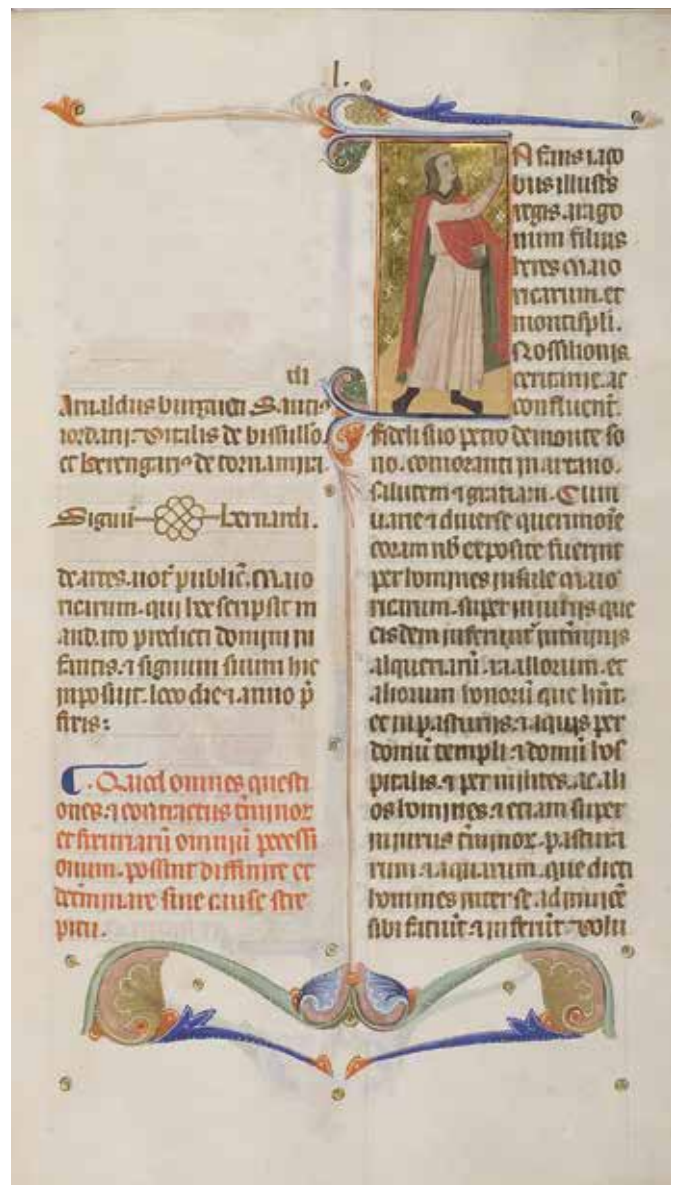 l.
di
Arnaldus burgueti Sancius
iordani. Vitalis de bissullo.
et berengarius de tornamira.
Signū bernardi.
de artes. not̄ public̄. Maio
ricarum. qui hec scripsit m
andato predicti domini in
fantis. ⁊ signum suum hic
inposuit. loco die ⁊ anno p̄
fixis:
Quod omnes questi
ones. ⁊ contractus t̄minor
et firmarū omniū possessi
onum. possint diffinire et
det̄minare sine cause stre
pitu.
Nfans iaco
bus illustris
regis. arago
num filius
heres Maio
ricarum. et
montispl̄i.
Rossilionis
ceritanie. ac
confluent̄.
fideli suo petro de monte so
no. comoranti in artano.
salutem ⁊ gratiam. Cum
uarie ⁊ diuerse querimoīe
coram nb̄ exposite fuerint
per homines insule maio
ricarum. super iniurijs que
eisdem inferunt̄ in t̄minis
alqueriarū. rahallorum. et
aliorum honorū que hn̄t.
et in pasturijs. ⁊ aquis per
domū templi ⁊ domū hos
pitalis. ⁊ per milites. ac ali
os homines. ⁊ etiam super
iniuriis t̄minor. pastura
rum. ⁊ aquarum. que dicti
homines inter se. ad inuicē
sibi faciūt ⁊ inferūt. uolu